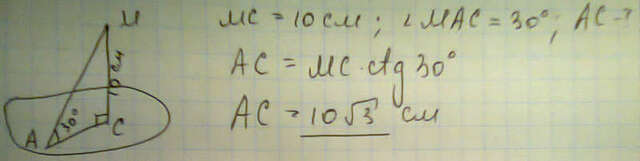 M
10 см
30°
A
C
MC = 10 см ; ∠ MAC = 30° ; AC - ?
AC = MC · ctg 30°
AC = 10√3 см